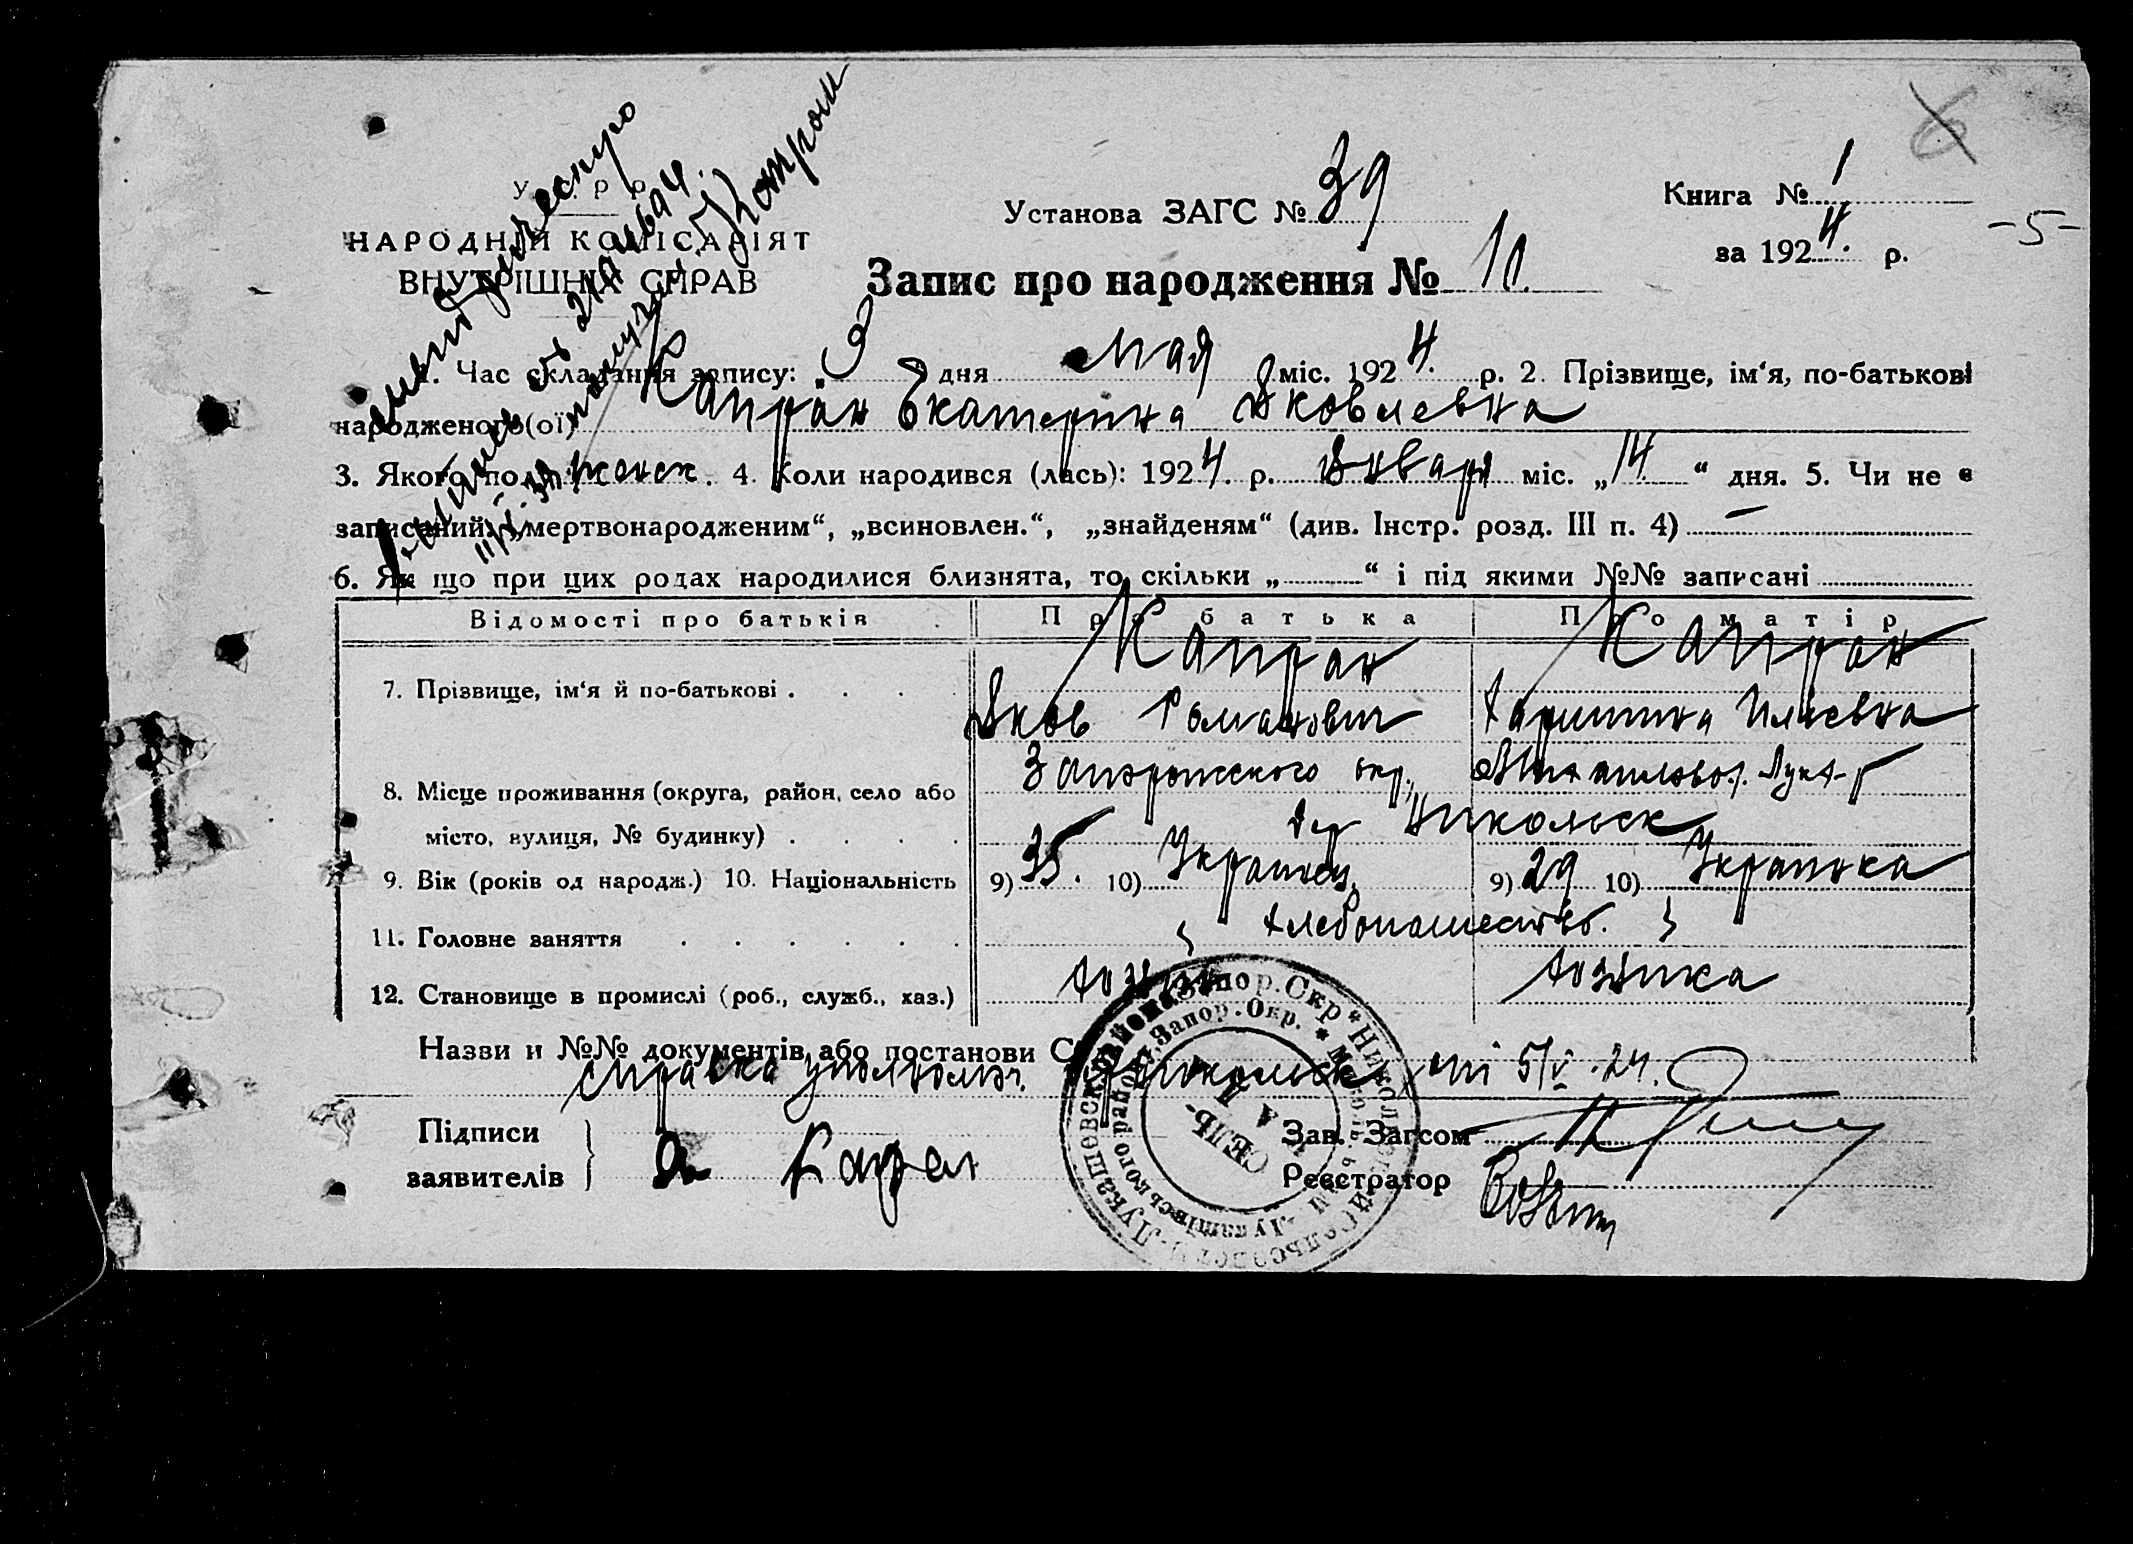 У. С. Р. Р.
НАРОДНІЙ КОМІСАРІЯТ
ВНУТРІШНІХ СПРАВ
Установа ЗАГС № 39
Книга № 1
за 1924. р.
-5-
Запис про народження № 10.
1. Час складання запису: „3 дня мая міс. 1924. р. 2. Прізвище, ім‘я, по-батькові
народженого(ої) Капран Екатерина Яковлевна
3. Якого полу женск. 4. Коли народився (лась): 1924. р. Января міс. „14“ дня. 5. Чи не є
записаний: „мертвонародженим“, „всиновлен.“, „знайденям“ (див. Інстр. розд. III п. 4) —
6. Як що при цих родах народилися близнята, то скільки „ “ і під якими №№ записані
Відомості про батьків Про батька Про матір
7. Прізвище, ім‘я й по-батькові . . . . Капран Капран
Яков Романович Харитина Илиевна
8. Місце проживання (округа, район, село або Запорожского окр.,
місто, вулиця, № будинку) . . . . дер Никольск
9. Вік (років од народж.) 10. Національність 9) 35. 10) Украинец 9) 29 10) Украинка
11. Головне заняття . . . . . . хлебопашество.
12. Становище в промислі (роб., служб., хаз.) хозяин хозяйка
Назви и №№ документів або постанови С
справка уполномоч. Никольск 5/V.24.
Підписи
заявителів
Зав. Загсом
Реєстратор
СЕЛЬ-